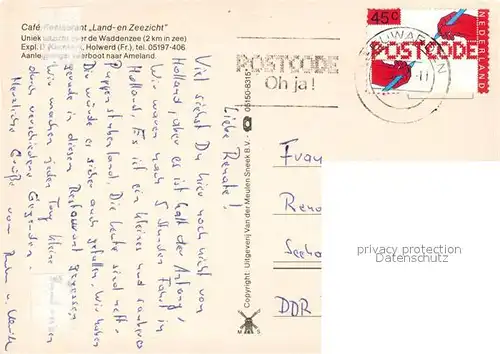 Café-Restaurant „Land- en Zeezicht"
Uniek uitzicht over de Waddenzee (2 km in zee)
Expl. D. Holwerd (Fr.), tel. 05197-406
Aanlegsteiger veerboot naar Ameland.
POSTCODE
Oh ja!
LEEUWARDEN
45c
POSTCODE
NEDERLAND
Liebe Renate!
Viel siehst Du hier noch nicht von
Holland, aber es ist halt der Anfang!
Wir waren nach 5 Stunden Fahrt in
Holland. Es ist ein kleines und sauberes
Puppenstubenland. Die Leute sind nett.
Dir würde es sicher auch gefallen. Wir haben
gerade in diesem Restaurant gegessen
Wir machen jeden Tag kleine
durch verschiedene Gegenden.
Herzliche Grüße von
Copyright: Uitgeverij Van der Meulen Sneek B.V. - 05150-83151
M S
Frau
Rena
Seeho
DDR
privacy protection
AnsichtskartenCenter